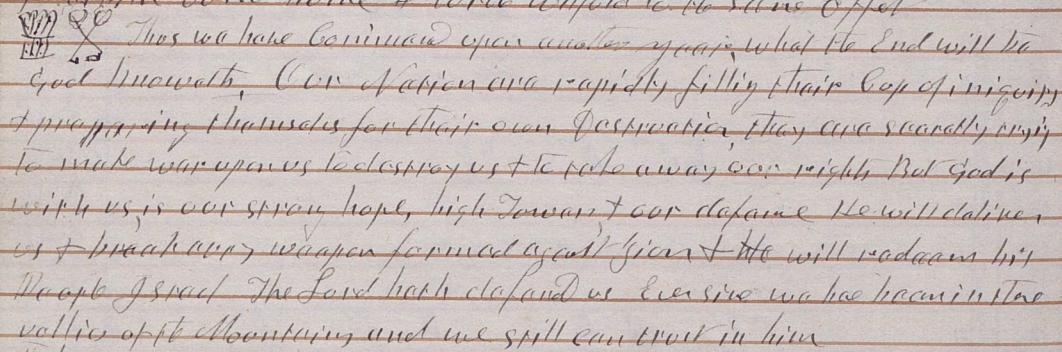 Thus we have Commencd upon another year, what the End will be
God knoweth, Our Nation are rapidly filling their Cop of iniquity
& preppairing themselves for their own Destruction, they are secretly trying
to make war upon us to destroy us & to take away our rights But God is
with us, is our strong hope, high Tower & our defence He will deliver
us & break evry weapon formed against Zion & He will redeem his
People Israel The Lord hath defended us Ever since we have been in the
vallies of the Mountains and we still can trust in him